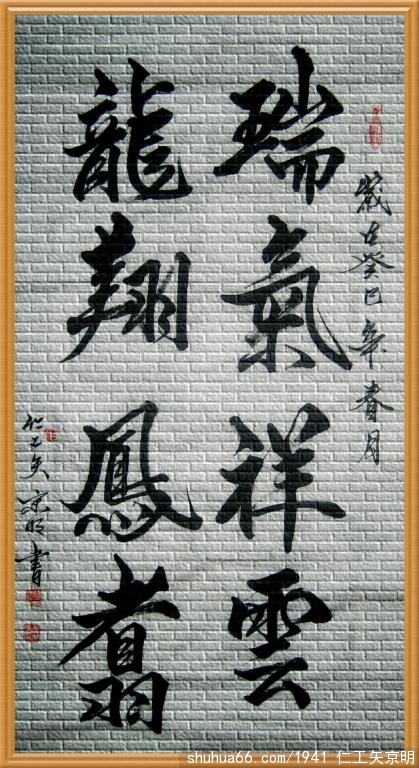 歲在癸巳年春月
瑞氣祥雲
龍翔鳳翥
仁工矢京明書
shuhua66.com/1941 仁工矢京明